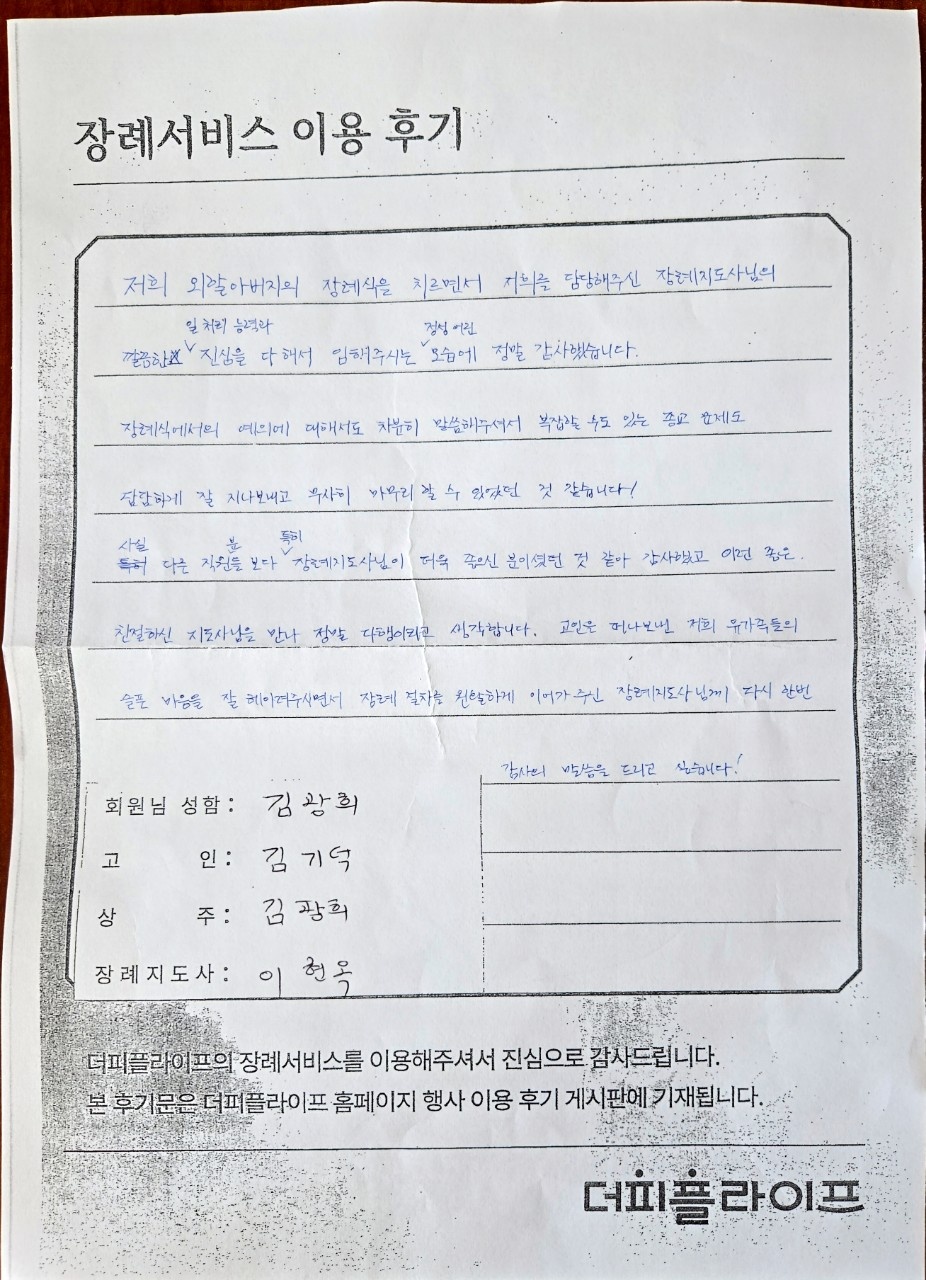 장례서비스 이용 후기
저희 외할아버지의 장례식을 치르면서 저희를 담당해주신 장례지도사님의
일 처리 능력과 정성 어린
깔끔한 진심을 다 해서 임해주시는 모습에 정말 감사했습니다.
장례식에서의 예의에 대해서도 차분히 말씀해주셔서 복잡할 수도 있는 종교 문제도
담담하게 잘 지나보내고 무사히 마무리 할 수 있었던 것 같습니다!
사실 분 특히
특히 다른 직원들 보다 장례지도사님이 더욱 좋으신 분이셨던 것 같아 감사했고 이런 좋은.
친절하신 지도사님을 만나 정말 다행이라고 생각합니다. 고인은 떠나보낸 저희 유가족들의
슬픈 마음을 잘 헤아려주시면서 장례 절차를 원활하게 이어가 주신 장례지도사님께 다시 한번
감사의 말씀을 드리고 싶습니다!
회원님 성함: 김광희
고 인: 김기덕
상 주: 김광희
장례지도사: 이현옥
더피플라이프의 장례서비스를 이용해주셔서 진심으로 감사드립니다.
본 후기문은 더피플라이프 홈페이지 행사 이용 후기 게시판에 기재됩니다.
더피플라이프